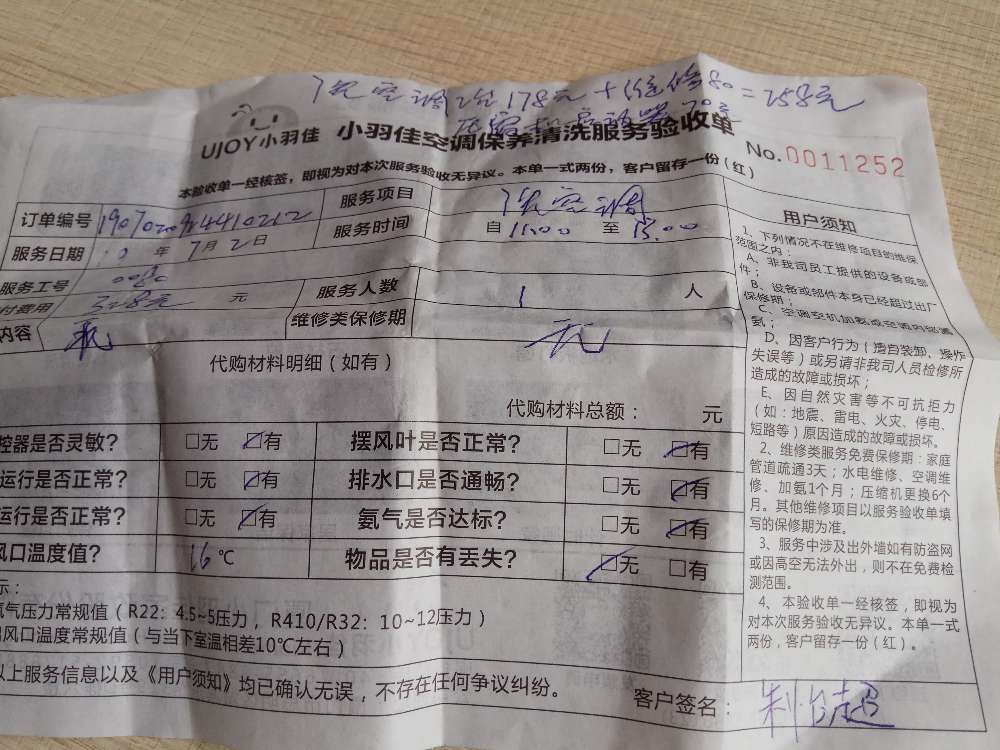 洗空调2台178元+维修80=258元
70元
UJOY小羽佳 小羽佳空调保养清洗服务验收单
本验收单一经核签，即视为对本次服务验收无异议。本单一式两份，客户留存一份（红）
No.0011252
订单编号 服务项目 洗空调
服务日期 年7月2日 服务时间 自 至15:00
服务工号 服务人数 1 人
付费用 328元 元
内容 维修类保修期 无
代购材料明细（如有）
代购材料总额： 元
控器是否灵敏? □无 ☑有 摆风叶是否正常? □无 ☑有
运行是否正常? □无 ☑有 排水口是否通畅? □无 ☑有
运行是否正常? □无 ☑有 氨气是否达标? □无 ☑有
风口温度值? 16℃ 物品是否有丢失? ☑无 □有
示：
氨气压力常规值（R22：4.5~5压力，R410/R32：10~12压力）
风口温度常规值（与当下室温相差10℃左右）
以上服务信息以及《用户须知》均已确认无误，不存在任何争议纠纷。
客户签名：
用户须知
1、下列情况不在维修项目的维保
范围之内：
A、非我司员工提供的设备或部
件；
B、设备或部件本身已经超过出厂
保修期；
C、空调空机加氨或空调内
氨；
D、因客户行为（擅自装卸、操作
失误等）或另请非我司人员检修所
造成的故障或损坏；
E、因自然灾害等不可抗拒力
（如：地震、雷电、火灾、停电、
短路等）原因造成的故障或损坏。
2、维修类服务免费保修期：家庭
管道疏通3天；水电维修、空调维
修、加氨1个月；压缩机更换6个
月。其他维修项目以服务验收单填
写的保修期为准。
3、服务中涉及出外墙如有防盗网
或因高空无法外出，则不在免费检
测范围。
4、本验收单一经核签，即视为
对本次服务验收无异议。本单一式
两份，客户留存一份（红）。